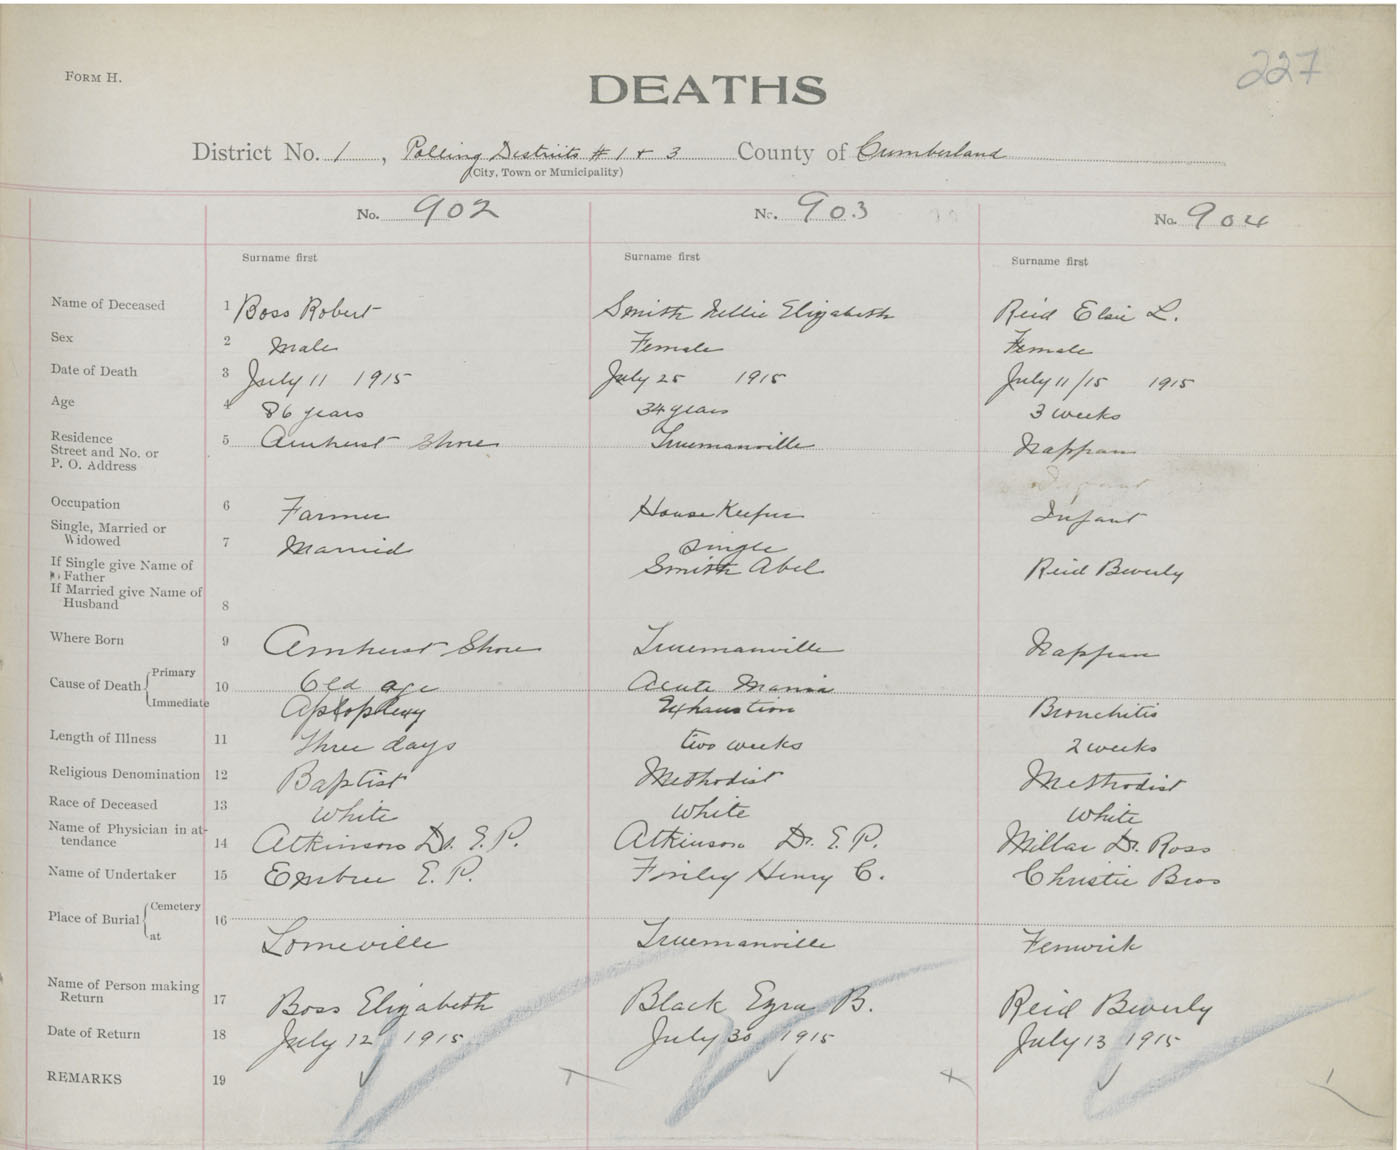 227
FORM H.
DEATHS
District No. 1, Polling Districts # 1 + 3 County of Cumberland
(City, Town or Municipality)
No. 902 No. 903 No. 904
Surname first Surname first Surname first
Name of Deceased 1 Boss Robert Smith Nellie Elizabeth Reid Elsie L.
Sex 2 Male Female Female
Date of Death 3 July 11 1915 July 25 1915 July 11/15 1915
Age 4 86 years 34 years 3 weeks
Residence 5 Amherst Shore Truemanville Nappan
Street and No. or
P. O. Address
Infant
Occupation 6 Farmer House Keeper Infant
Single, Married or
Widowed 7 Married Single
If Single give Name of Smith Abel Reid Beverly
Father
If Married give Name of
Husband 8
Where Born 9 Amherst Shore Truemanville Nappan
Cause of Death Primary 10 Old age Acute Mania
Immediate Apoplexy Exhaustion Bronchitis
Length of Illness 11 Three days two weeks 2 weeks
Religious Denomination 12 Baptist Methodist Methodist
Race of Deceased 13 White White White
Name of Physician in at-
tendance 14 Atkinson Dr. E. P. Atkinson Dr. E. P. Millar Dr. Ross
Name of Undertaker 15 Embree E. P. Finley Henry C. Christie Bros
Place of Burial Cemetery 16
at Lorneville Truemanville Fenwick
Name of Person making
Return 17 Boss Elizabeth Black Ezra B. Reid Beverly
Date of Return 18 July 12 1915 July 30 1915 July 13 1915
REMARKS 19